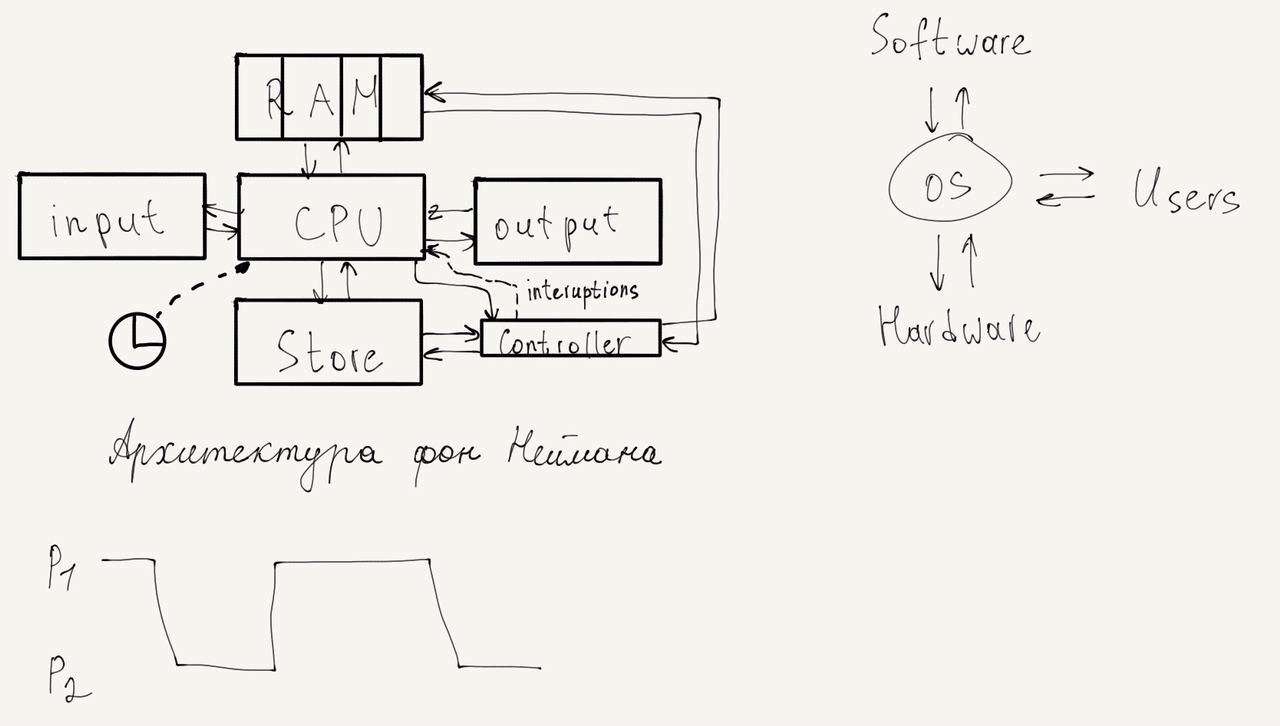 RAM
input
CPU
output
interuptions
Store
Controller
Архитектура фон Неймана
P1
P2
Software
OS
Users
Hardware